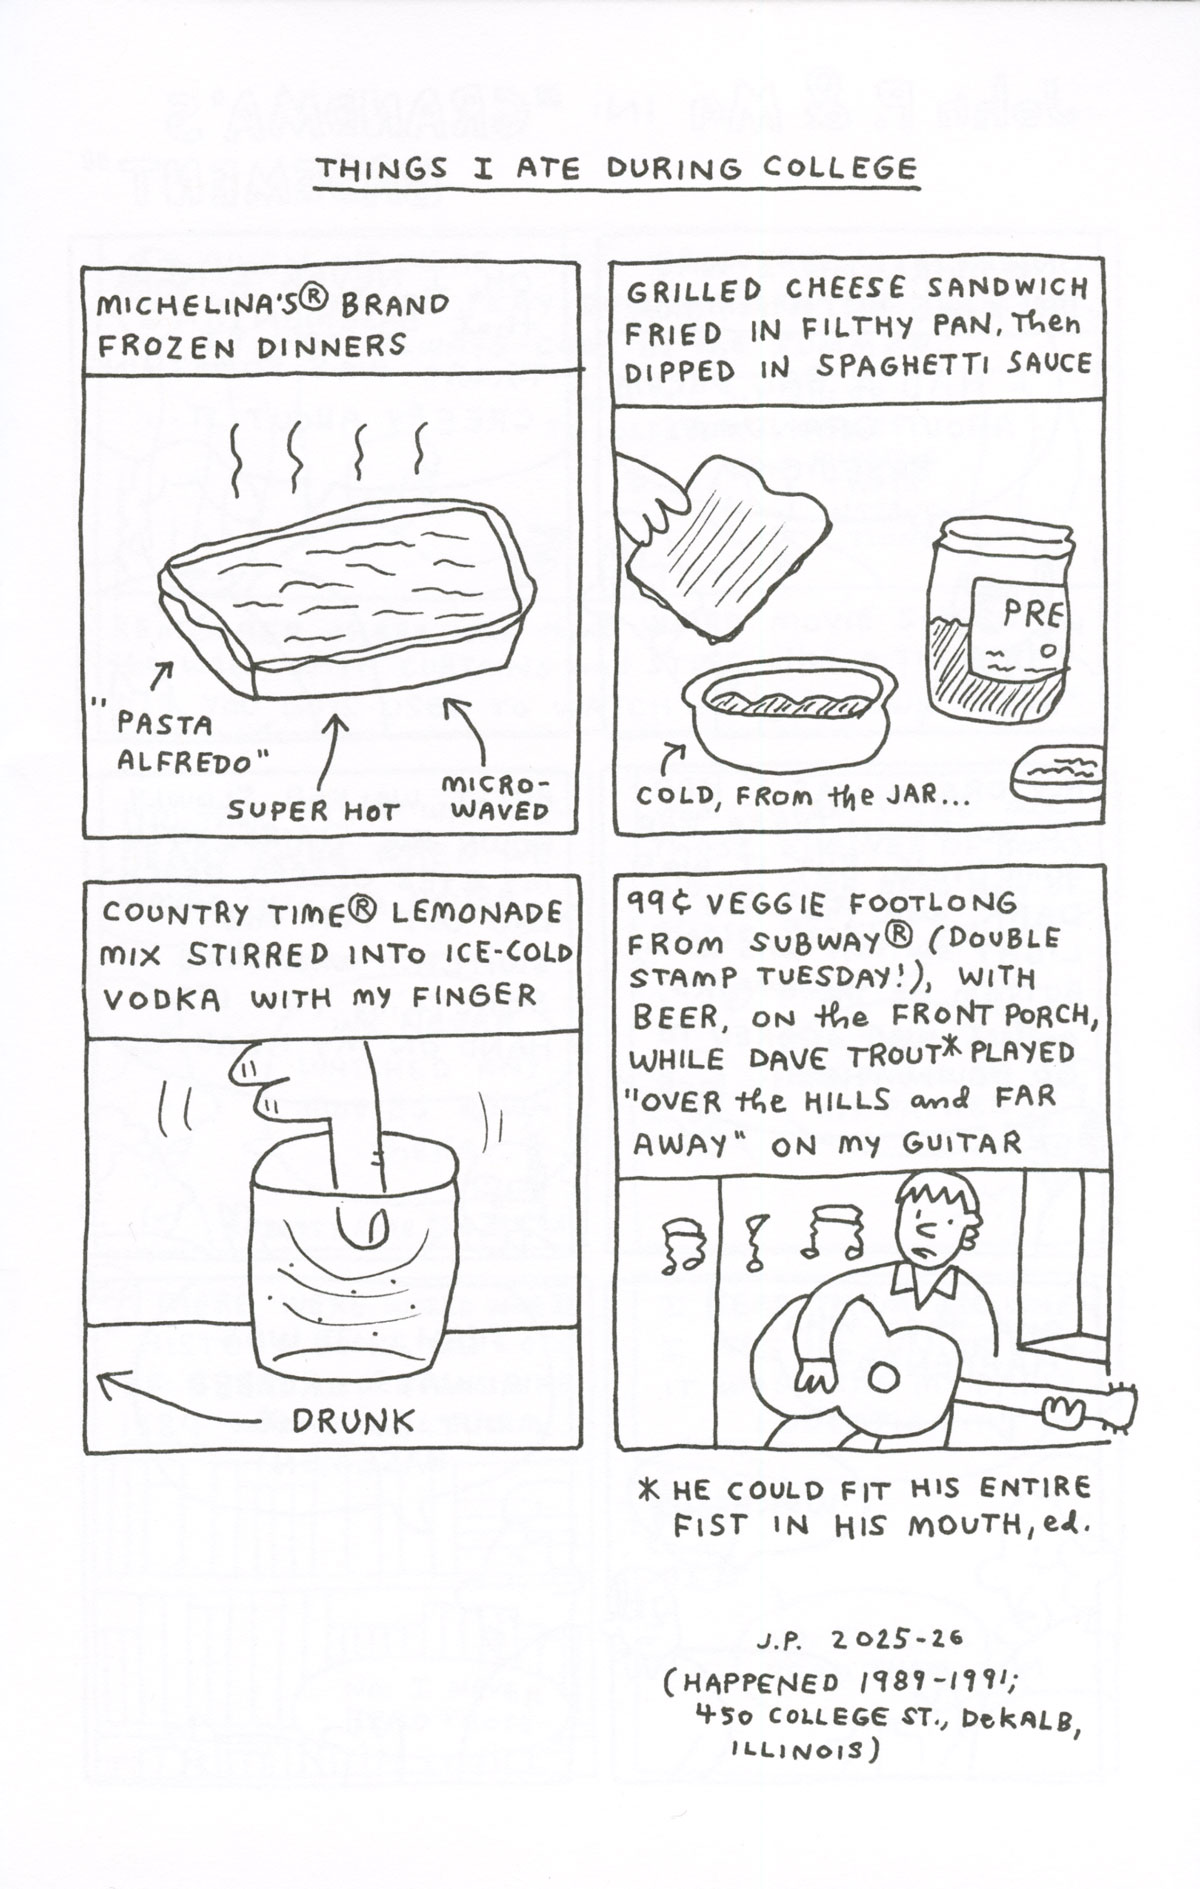 THINGS I ATE DURING COLLEGE
MICHELINA'S® BRAND
FROZEN DINNERS
"PASTA
ALFREDO"
SUPER HOT
MICRO-
WAVED
GRILLED CHEESE SANDWICH
FRIED IN FILTHY PAN, Then
DIPPED IN SPAGHETTI SAUCE
PRE
COLD, FROM the JAR...
COUNTRY TIME® LEMONADE
MIX STIRRED INTO ICE-COLD
VODKA WITH MY FINGER
DRUNK
99¢ VEGGIE FOOTLONG
FROM SUBWAY® (DOUBLE
STAMP TUESDAY!), WITH
BEER, ON the FRONT PORCH,
WHILE DAVE TROUT* PLAYED
"OVER the HILLS and FAR
AWAY" ON MY GUITAR
* HE COULD FIT HIS ENTIRE
FIST IN HIS MOUTH, ed.
J.P. 2025-26
(HAPPENED 1989-1991;
450 COLLEGE ST., DeKALB,
ILLINOIS)